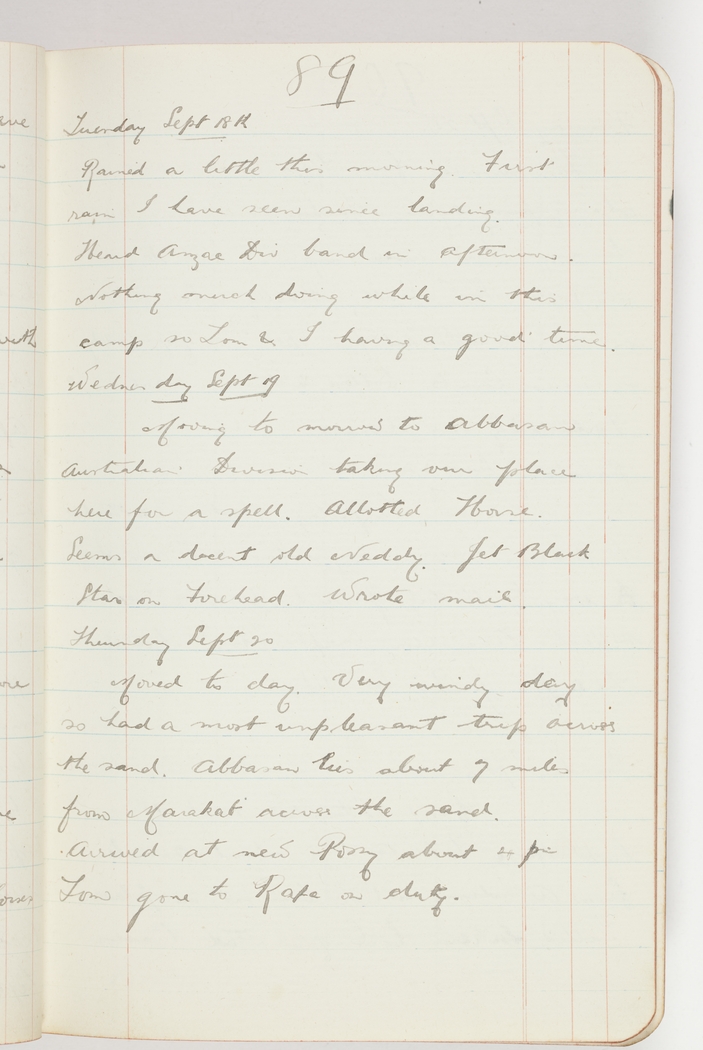 89
Tuesday Sept 18th
Rained a little this morning. First
rain I have seen since landing.
Heard Anzac Div band in afternoon.
Nothing much doing while in this
camp so Tom & I having a good time.
Wednesday Sept 19
Moving to morrow to Abbasan
Australian Division taking our place
here for a spell. Allotted Horse.
Seems a decent old Neddy. Jet Black
Star on Forehead. Wrote mail.
Thursday Sept 20
Moved to day. Very windy day
so had a most unpleasant trip across
the sand. Abbasan lies about 7 miles
from Marakab across the sand.
Arrived at new Possy about 4 pm
Tom gone to Rafa on duty.